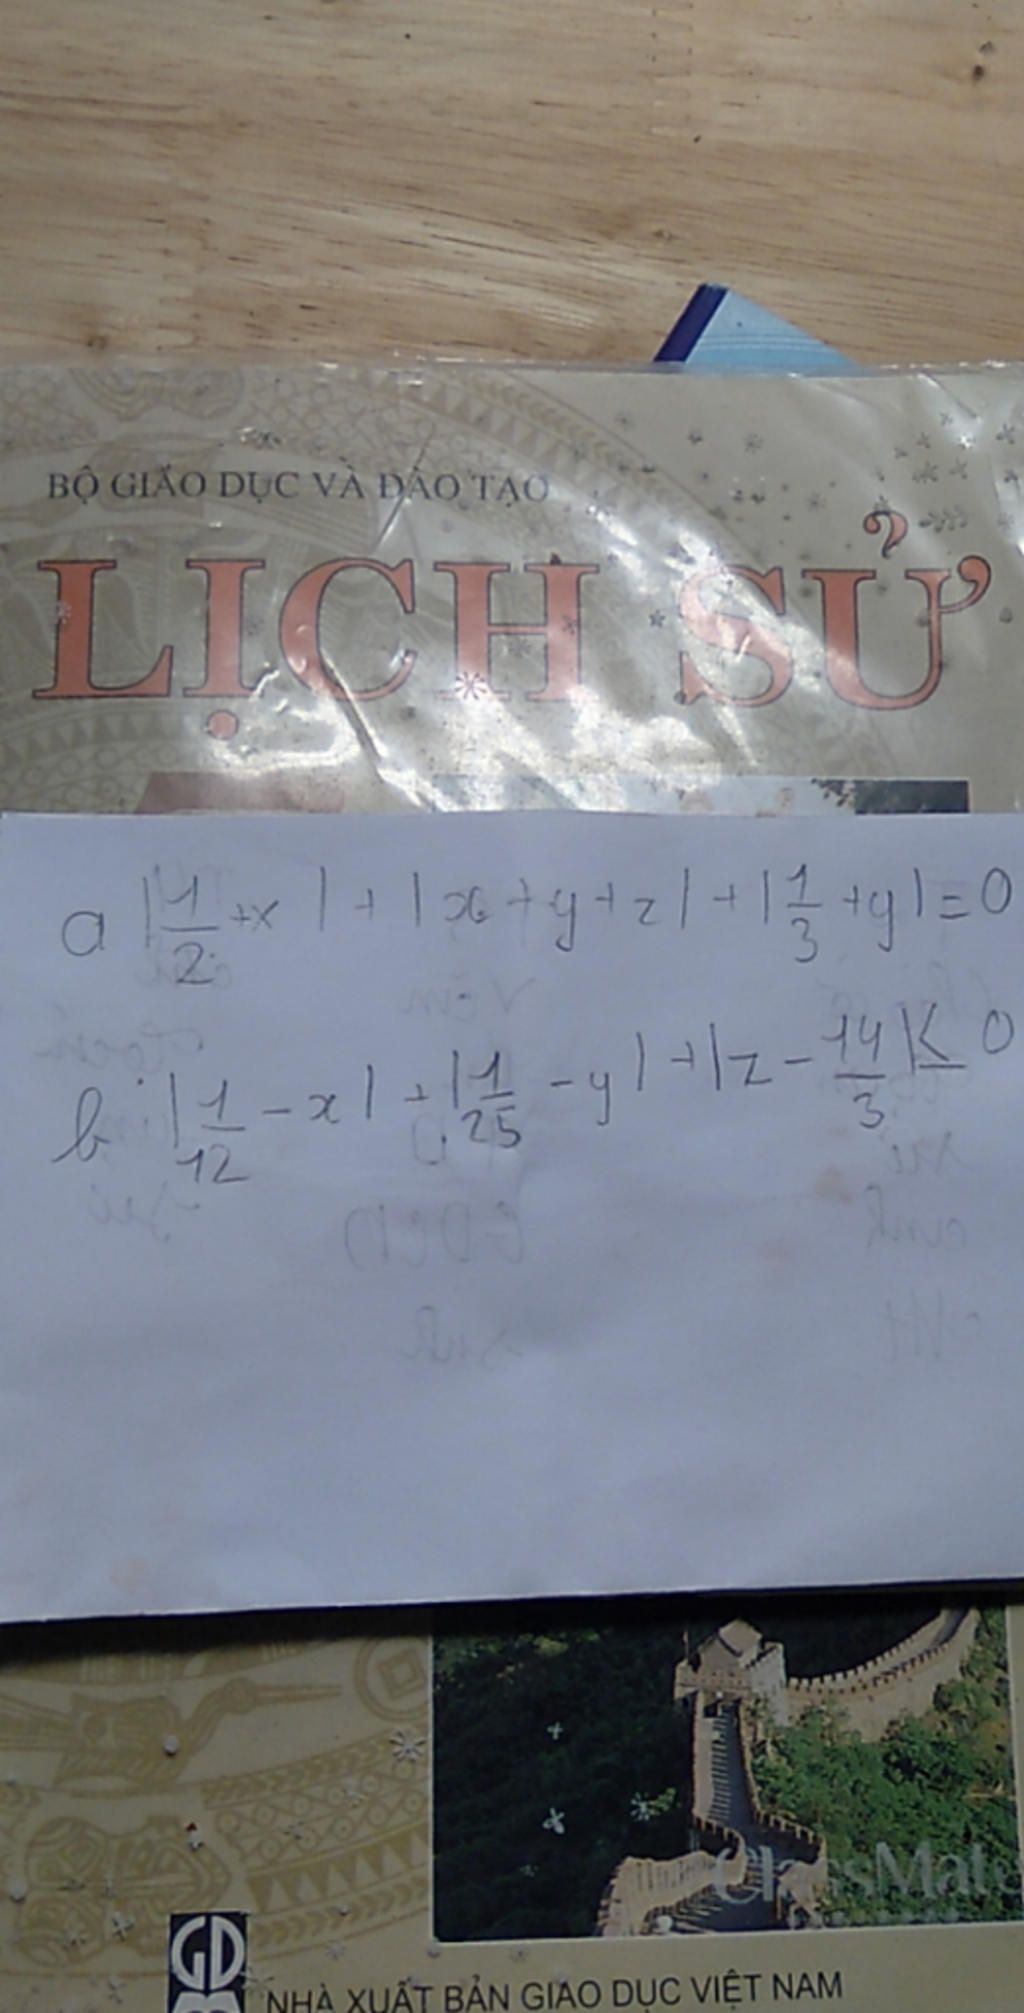 BỘ GIÁO DỤC VÀ ĐÀO TẠO
LỊCH SỬ
a |1/2+x| + |x+y+z| + |1/3+y| = 0
b |1/12 - x| + |1/25 - y| + |z - 14/3| ≤ 0
ClassMate
GD
NHÀ XUẤT BẢN GIÁO DỤC VIỆT NAM